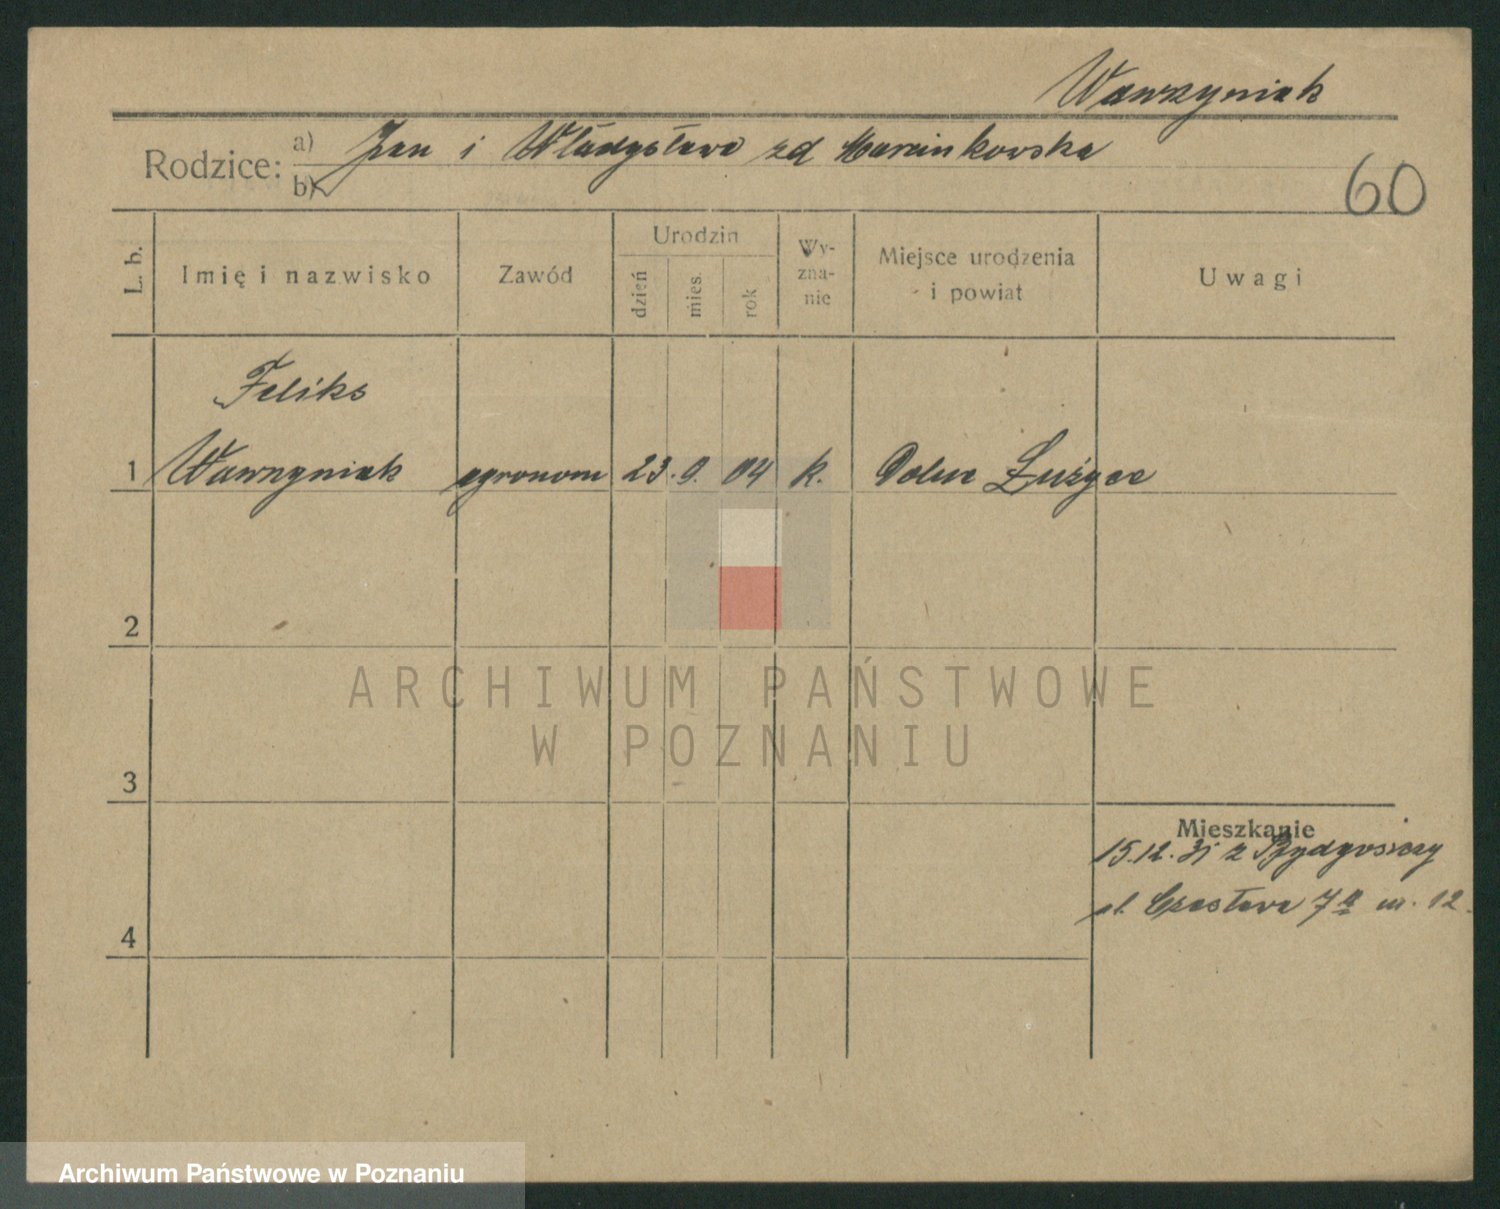 Wawrzyniak
Rodzice: a) Jan i Władysława zd Marcinkowska
b)
60
L. b.
Imię i nazwisko
Zawód
Urodzin
dzień
mies.
rok
Wy-
zna-
nie
Miejsce urodzenia
i powiat
Uwagi
Feliks
1 Wawrzyniak agronom 23. 9. 04 k. Dolne Łużyce
2
3
4
Mieszkanie
15.12.31 z Bydgoszczy
pl. Czesława 7a m. 12.
ARCHIWUM PAŃSTWOWE
W POZNANIU
Archiwum Państwowe w Poznaniu